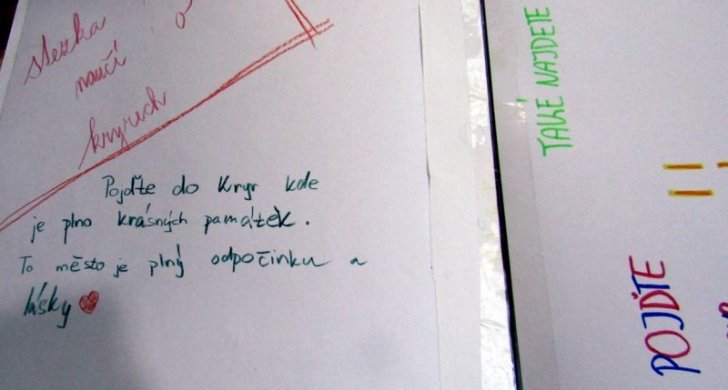 stezka
naučí
kryrech
Pojďte do Kryr kde
je plno krásných památek.
To město je plný odpočinku a
lásky
TAKÉ NAJDETE
POJĎTE